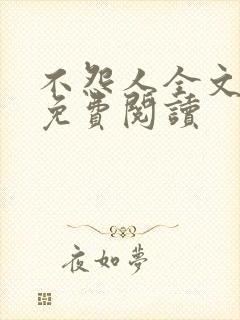 不怨人全文
免費閱讀
夜如夢